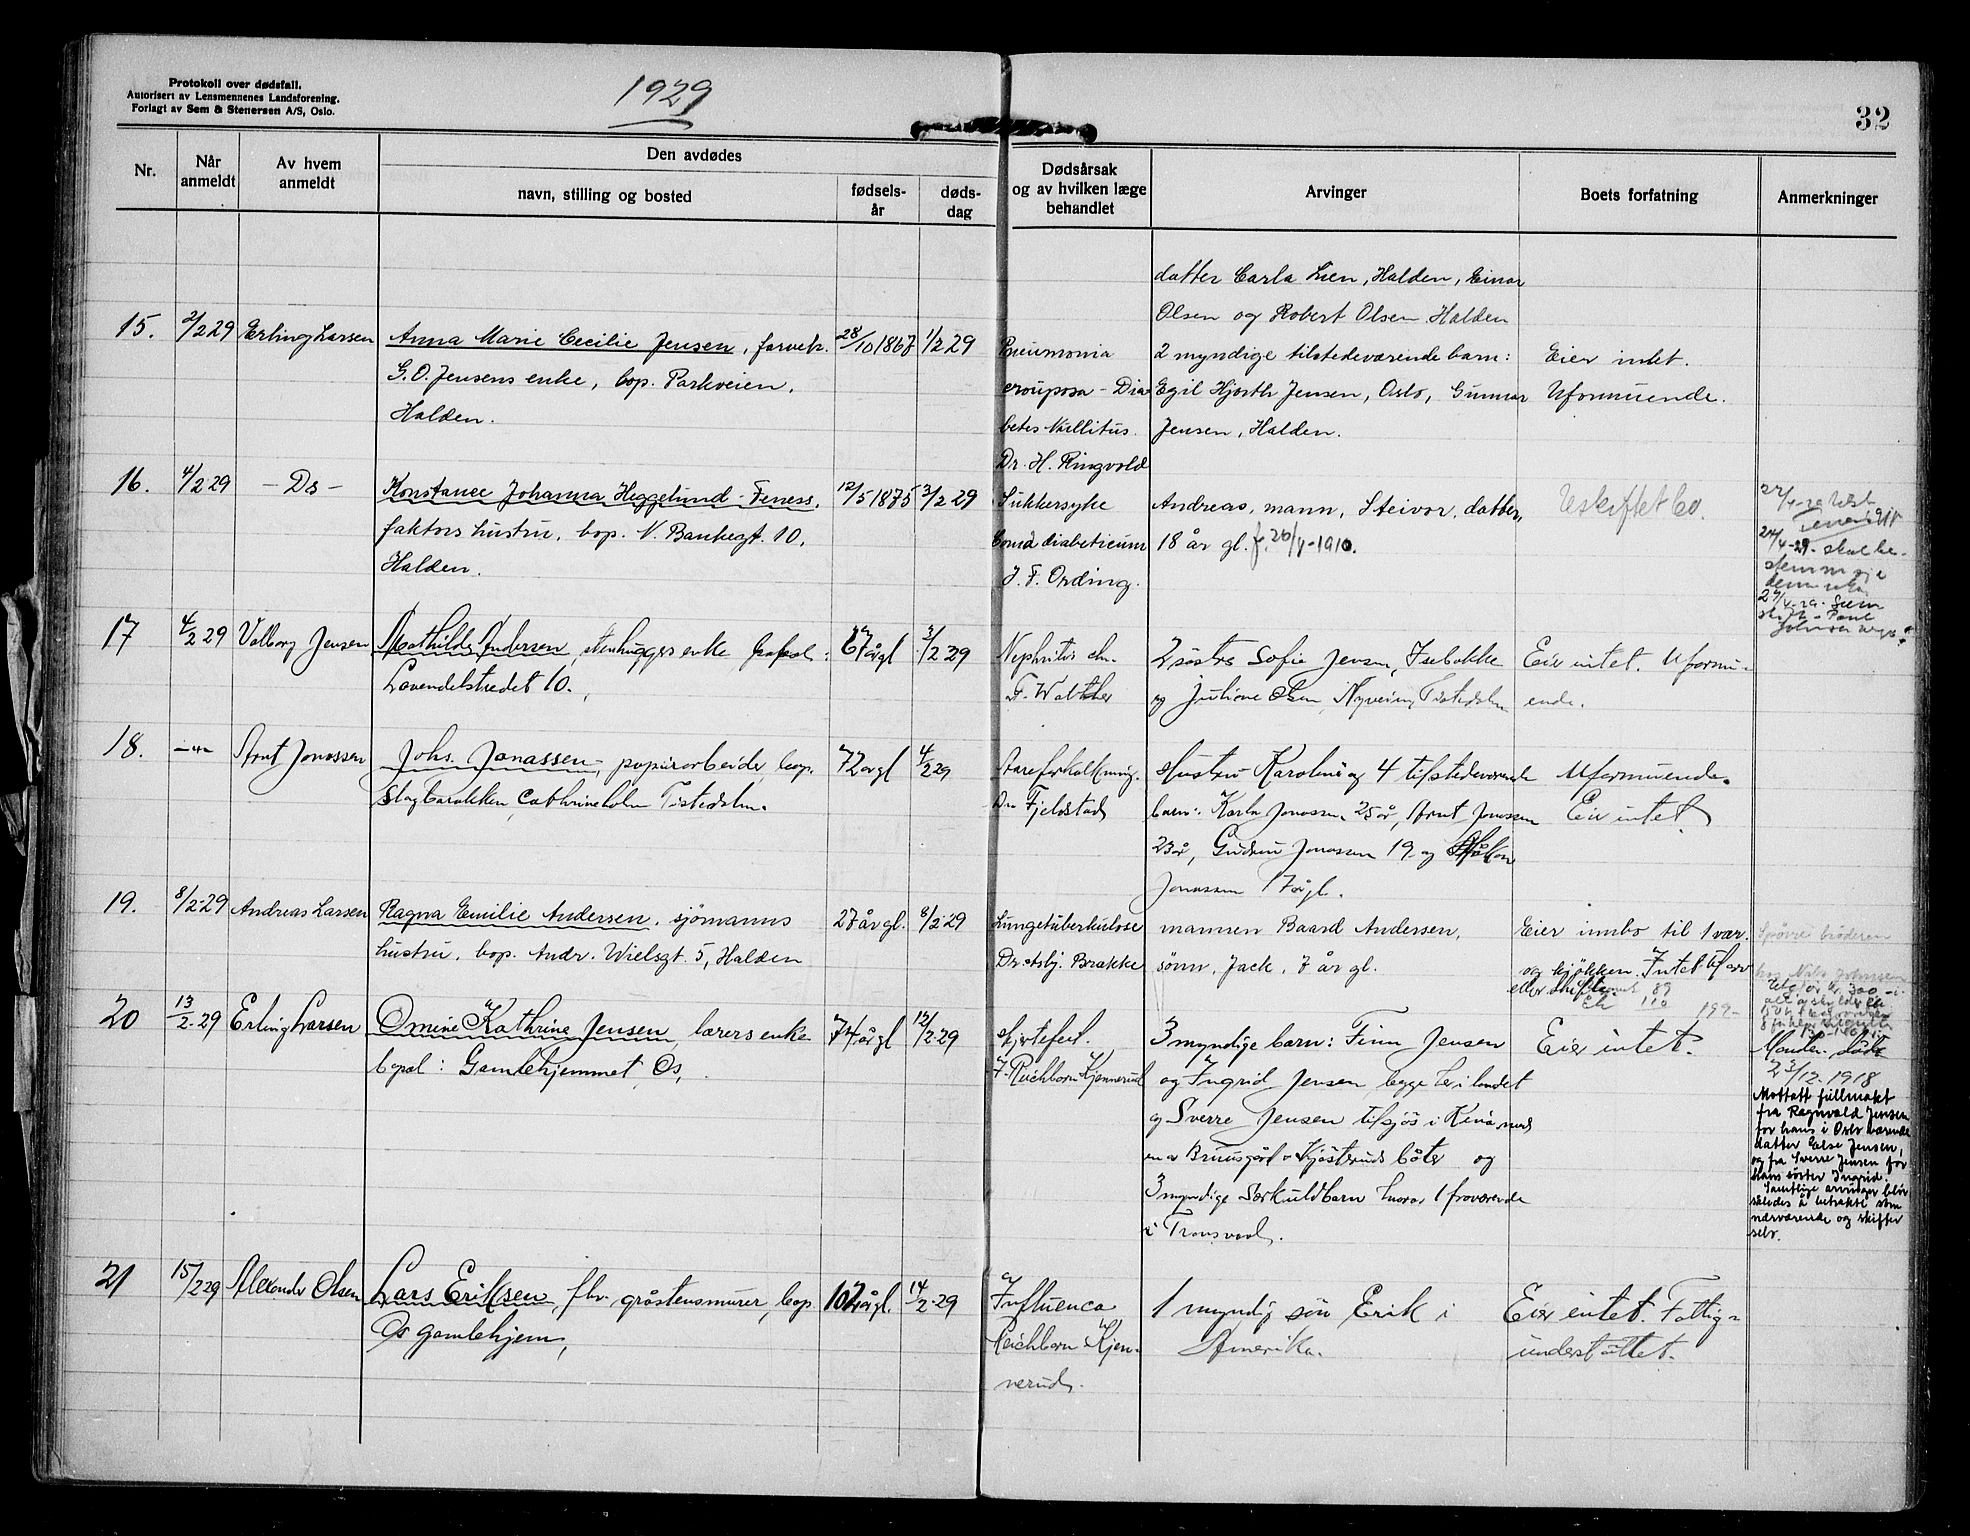 Protokoll over dødsfall.
Autorisert av Lensmennenes Landsforening.
Forlagt av Sem & Stenersen A/S, Oslo.
1929
32
Nr.
Når anmeldt
Av hvem anmeldt
Den avdødes
navn, stilling og bosted
fødsels-år
døds-dag
Dødsårsak og av hvilken læge behandlet
Arvinger
Boets forfatning
Anmerkninger
datter Carla Lien, Halden, Einar
Olsen og Robert Olsen Halden
15.
2/2 29
Erling Larsen
Anna Marie Cecilie Jensen, farveh.
G.O. Jensens enke, bop. Parkveien,
Halden.
28/10 1867
1/2 29
Pneumonia
crouposa - Dia
betes Mellitus.
Dr. H. Ringvold
2 myndige tilstedeværende barn:
Egil Hjorth Jensen, Oslo, Gunnar
Jensen, Halden.
Eier intet.
Uformuende.
16.
4/2 29
- Ds -
Konstance Johanna Heggelund-Feness,
faktors hustru, bop. V. Bankegt. 10,
Halden.
12/5 1875
3/2 29
Sukkersyke
Coma diabeticum
J. F. Ording.
Andreas, mann, Steivor, datter,
18 år gl. f. 20/4-1910.
Uskiftet bo.
24/4-29 skal be-
stemme sig
17
4/2 29
Valborg Jensen
Mathilde Andersen, stenhuggers enke bopæl:
Lavendelstredet 10.
67 år gl
3/2 29
Nephritis chr.
F. Walther
2 søstre Sofie Jensen, Isebakke
og Juliane Olsen, Nyveien, Tistedalen
Eier intet. Uformu-
ende.
18.
Arnt Jonassen
Johs. Jonassen, papirarbeider, bop.
Slagbarakken, Cathrineholm Tistedalen.
72 år gl
4/2 29
Aareforkalkning.
Dr. Fjeldstad
Hustru Karoline og 4 tilstedeværende
barn: Karla Jonassen 25 år, Arnt Jonassen
23 år, Gudrun Jonassen 19 og Håkon
Jonassen 17 år gl.
Uformuende.
Eier intet.
19.
8/2-29
Andreas Larsen
Ragna Emilie Andersen, sjömanns
hustru, bop. Andr. Wielsgt. 5, Halden
27 år gl.
8/2-29
Lungetuberkulose
Dr. Asbj. Brække
mannen Baard Andersen,
sønn, Jack, 7 år gl.
Eier innbo til 1 vær.
og kjøkken. Intet
eller skifte.
20
13/2-29
Erling Larsen
Omine Kathrine Jensen, lærers enke
bopæl: Gamlehjemmet, Os,
74 år gl
12/2-29
Hjertefeil.
F. Reichborn Kjennerud
3 myndige barn: Finn Jensen
og Ingrid Jensen begge her i landet
og Sverre Jensen tilsjøs i Kina med
en av Bruusgård Kjøsteruds båter og
3 myndige Særkuldbarn hvorav 1 fraværende
i Transvaal.
Eier intet.
Manden døde
23/12-1918
Mottatt fullmakt
fra Ragnvald Jensen
for hans i Oslo værende
datter Else Jensen,
og fra Sverre Jensen for
hans søster Ingrid.
Samtlige arvinger blir
således å betrakte som
nærværende og skifter
selv.
21
15/2 29
Alexander Olsen
Lars Eriksen, fhv. gråstensmurer, bop.
Os gamlehjem,
102 år gl.
14/2-29
Influenca
Reichborn Kjen-
nerud.
1 myndig søn Erik i
Amerika.
Eier intet. Fattig-
understøttet.